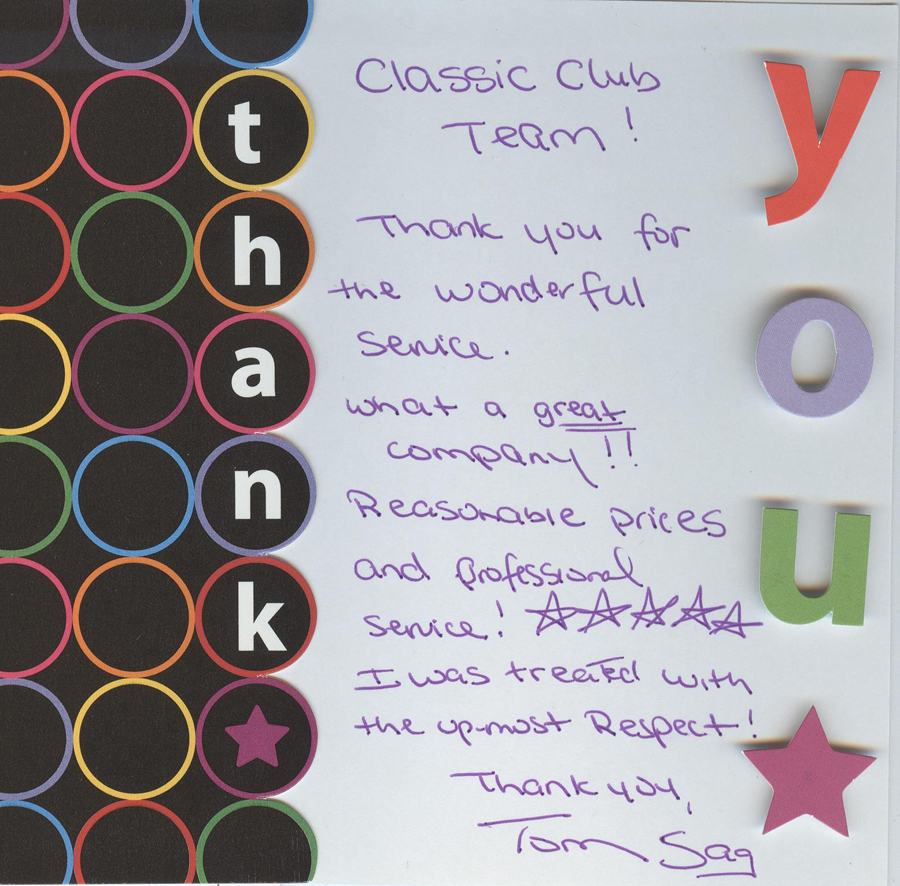 thank
you
Classic Club
Team!
Thank you for
the wonderful
service.
what a great
company!!
Reasonable prices
and professional
service!
I was treated with
the up-most Respect!
Thank you,
Tom Sag